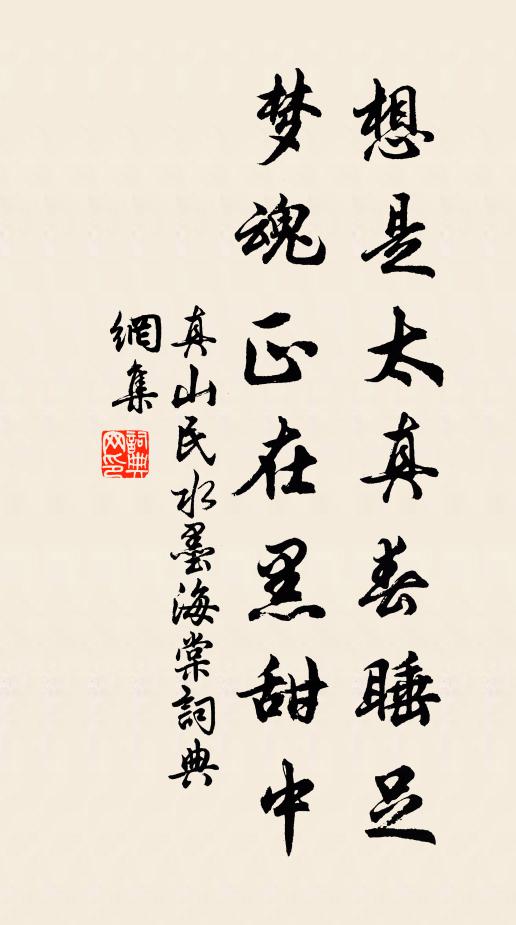 想是太真春睡足
梦魂正在黑甜中
真山民水墨海棠詞典
網集
詞典
网印